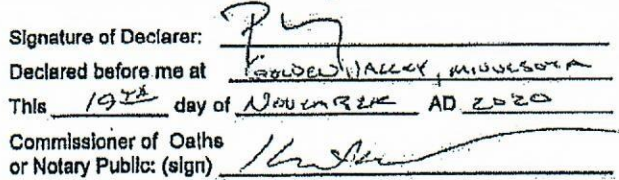 Signature of Declarer:
Declared before me at GOLDEN VALLEY, MINNESOTA
This 19TH day of NOVEMBER AD 2020
Commissioner of Oaths
or Notary Public: (sign)